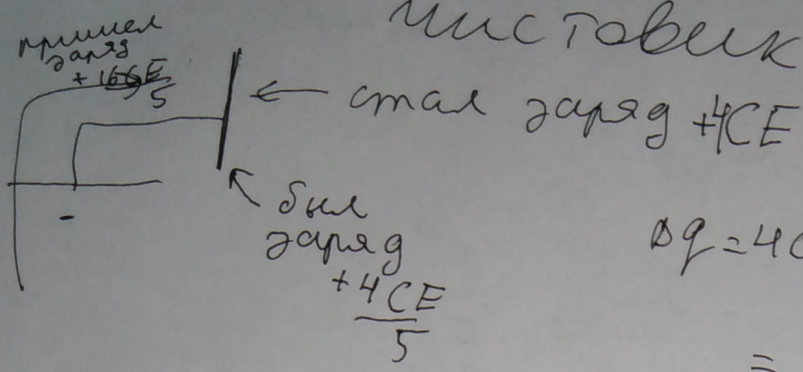 чистовик
пришел
заряд
+ 16CE
5
стал заряд +4CE
-
был
заряд
+4CE
5
Δq = 4C
=